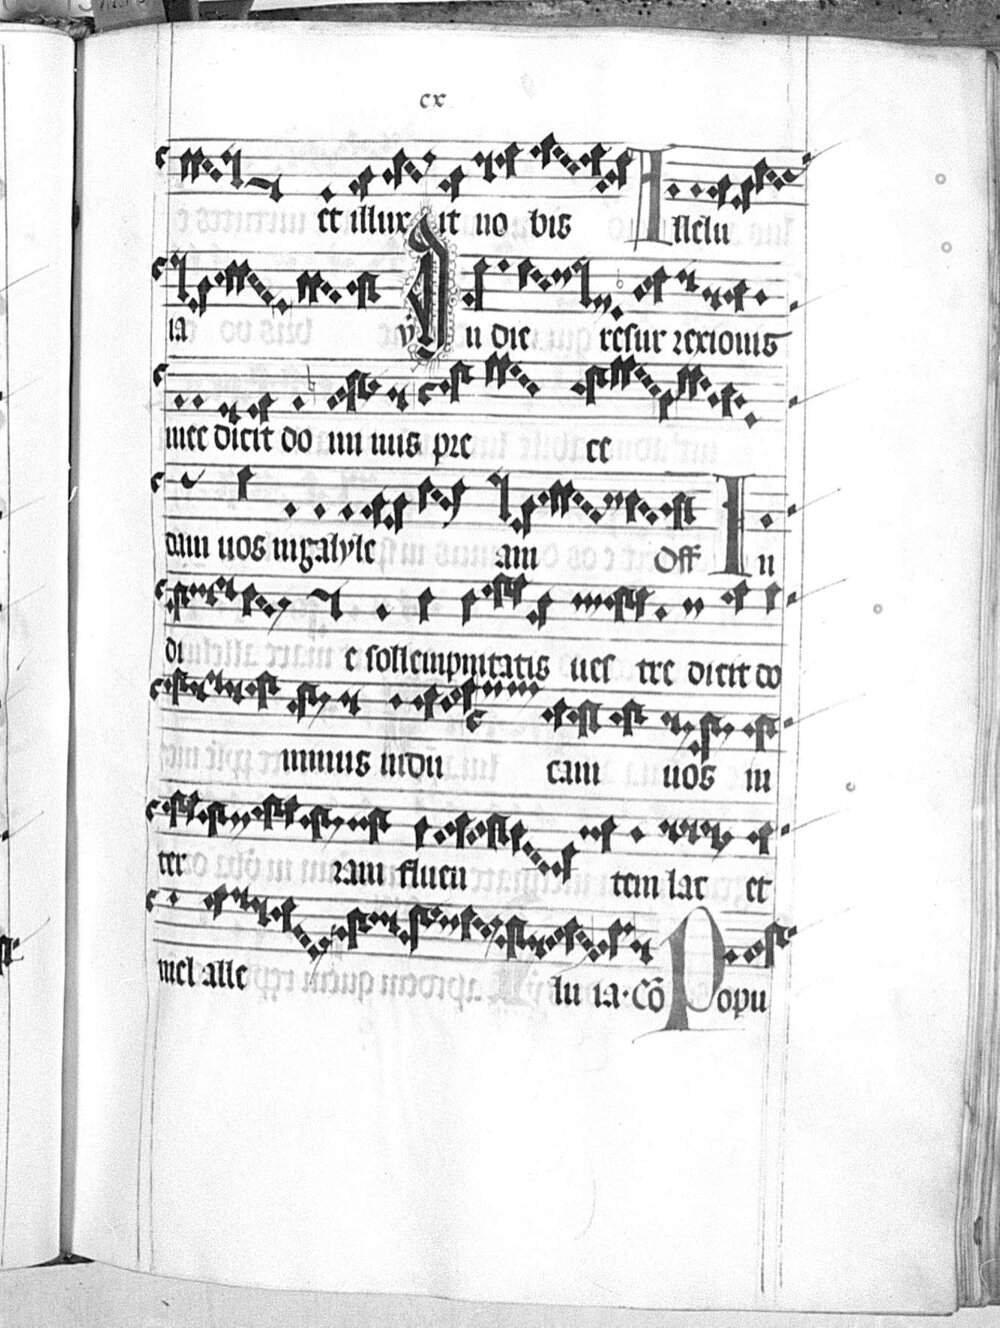 cx
et illux it no bis Allelu
ia ℣ In die resur rexionis
mee dicit do mi nus pre ce
dam uos ingalyle am Off In
di e sollempnitatis ues tre dicit do
minus indu cam uos in
ter ram fluen tem lac et
mel alle lu ia · Cõ Popu